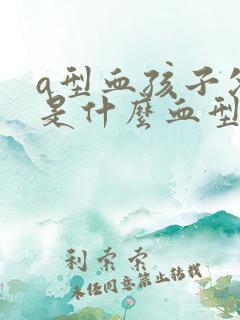 a型血孩子
是什麼血型
利索索
未经同意禁止转载